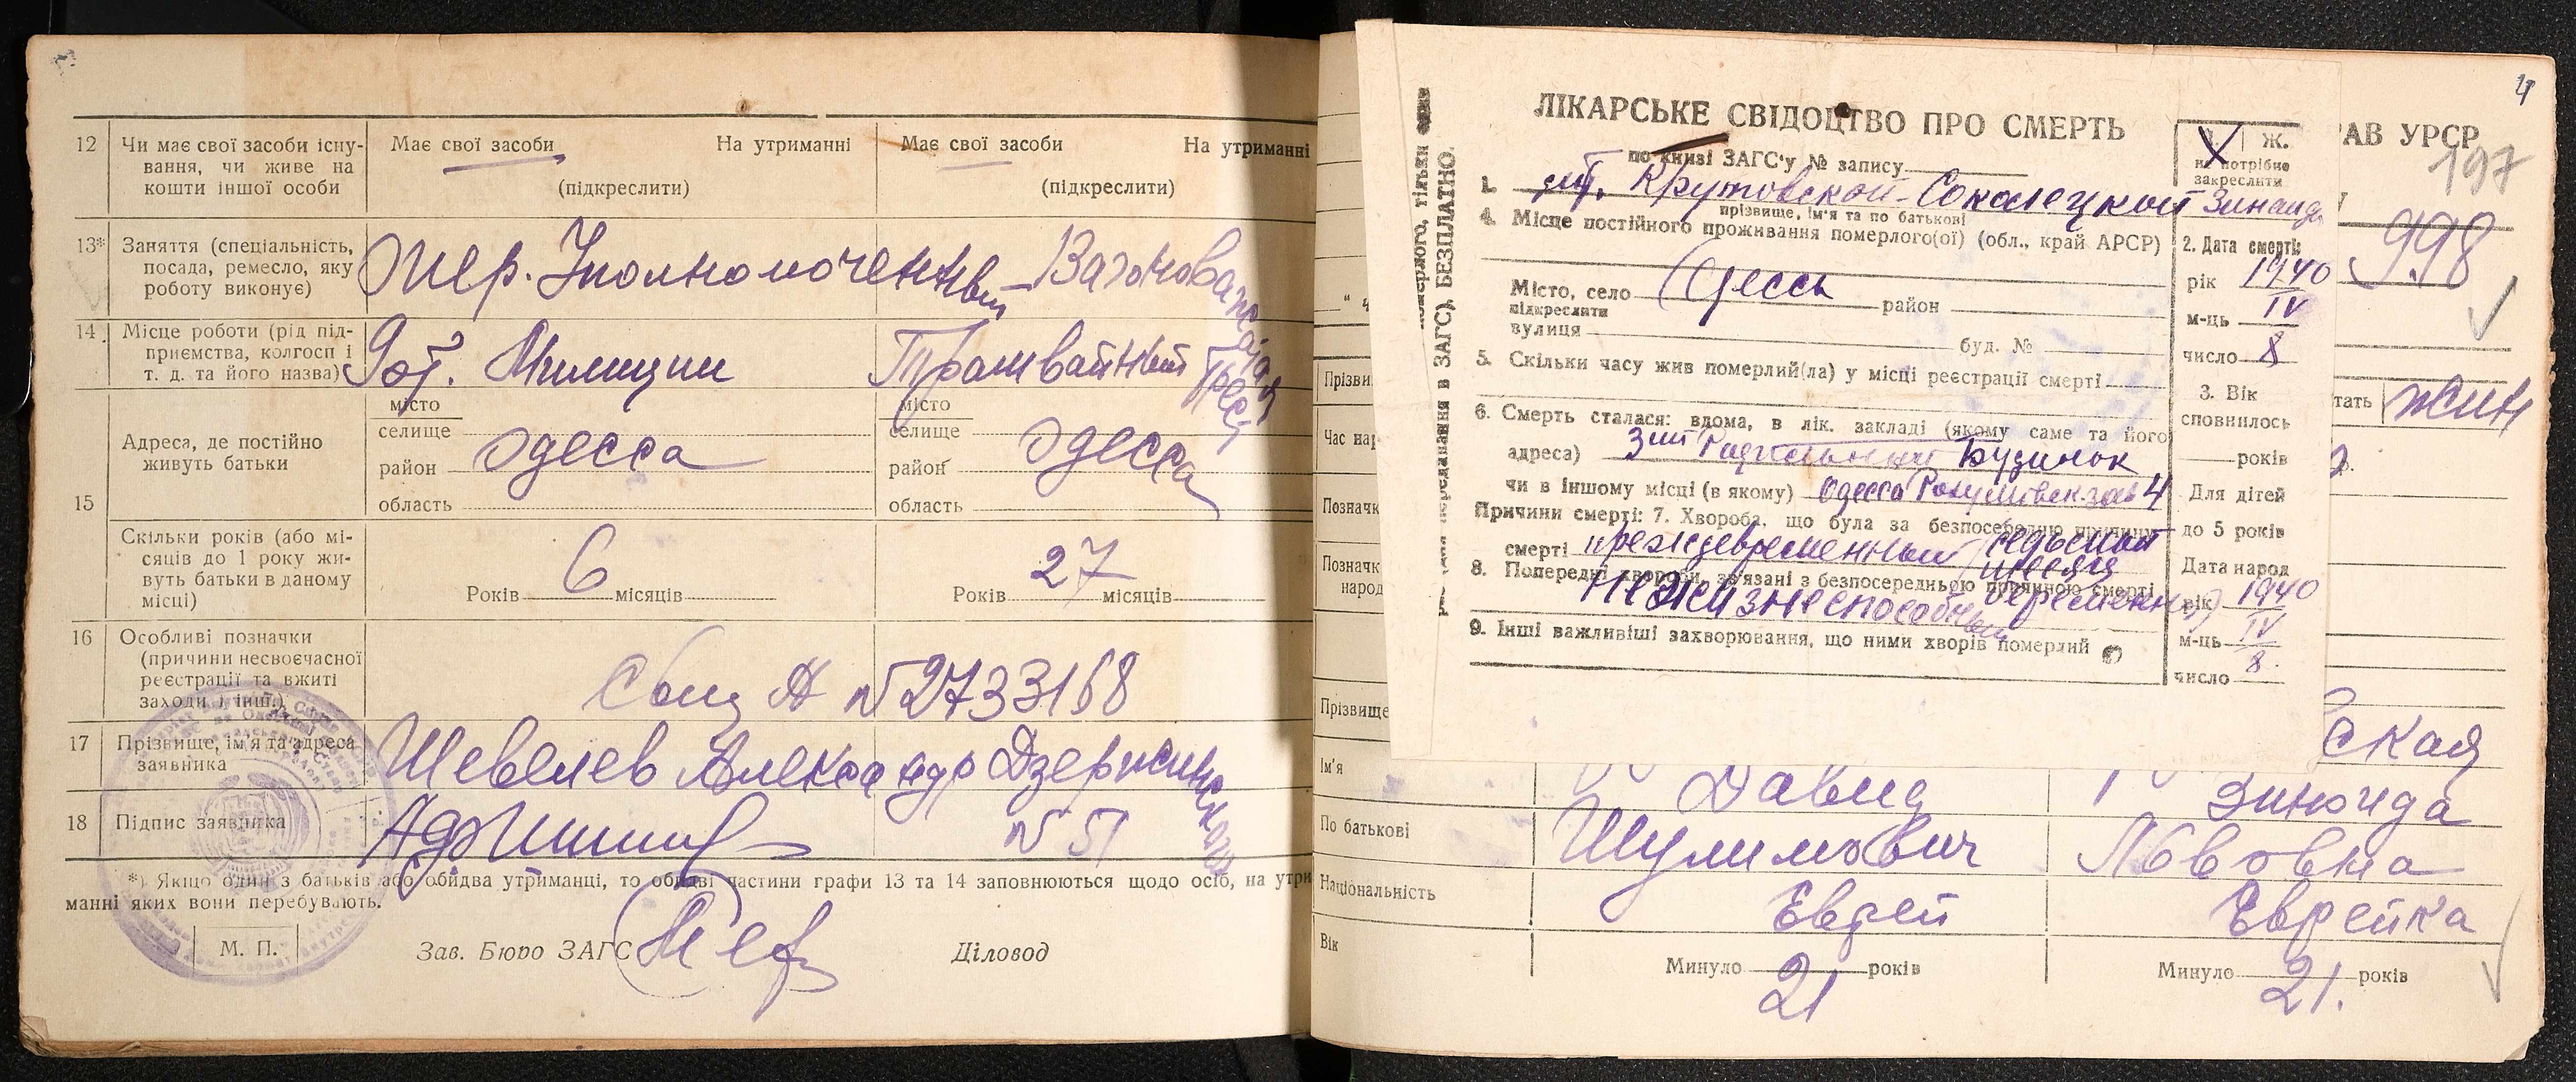 12 Чи має свої засоби існування, чи живе на кошти іншої особи
Має свої засоби На утриманні
(підкреслити)
Має свої засоби На утриманні
(підкреслити)
13* Заняття (спеціальність, посада, ремесло, яку роботу виконує)
Опер. Уполномоченный
Вагоноважатая
14. Місце роботи (рід підприємства, колгосп і т. д. та його назва)
9 от. Милиции
Трамвайный Трест
15 Адреса, де постійно живуть батьки
місто
селище
район
область
Одесса
місто
селище
район
область
Одесса
Скільки років (або місяців до 1 року живуть батьки в даному місці)
Років 6 місяців
Років 27 місяців
16 Особливі позначки (причини несвоєчасної реєстрації та вжиті заходи і інш.)
№ 2733168
17 Прізвище, ім'я та адреса заявника
Шевелев Александр Дзержинского
№ 51
18 Підпис заявника
*) Якщо один з батьків або обидва утриманці, то обидві частини графи 13 та 14 заповнюються щодо осіб, на утри
манні яких вони перебувають.
М. П.
Зав. Бюро ЗАГС
Діловод
4
РАВ УРСР
197
998
ЛІКАРСЬКЕ СВІДОЦТВО ПРО СМЕРТЬ
по книзі ЗАГС'у № запису
Ж.
непотрібне закреслити
БЕЗПЛАТНО.
1. Крутовской-Соколецкой Зинаид
прізвище, ім'я та по батькові
4. Місце постійного проживання померлого(ої) (обл., край АРСР)
Місто, село Одесса район
підкреслити
вулиця буд. №
5. Скільки часу жив померлий(ла) у місці реєстрації смерті
6. Смерть сталася: вдома, в лік. закладі (якому саме та його
адреса) 3ий Будинок
чи в іншому місці (в якому) Одесса 4
Причини смерті: 7. Хвороба, що була за безпосередню причину
смерті преждевременный (седьмой
месяц
8. Попередні хвороби, зв'язані з безпосередньою причиною смерті
беременн)
нежизнеспособный
9. Інші важливіші захворювання, що ними хворів померлий
2. Дата смерті:
рік 1940
м-ць IV
число 8
3. Вік
сповнилось
років
Для дітей
до 5 років
Дата народ
рік 1940
м-ць IV
число 8.
Прізви
тать жин
Час нар
Познач
Познач
народ
Прізвище
ская
Ім'я Давид Зиноида
По батькові Шулимович Львовна
Національність Еврей Еврейка
Вік
Минуло 21 років
Минуло 21. років